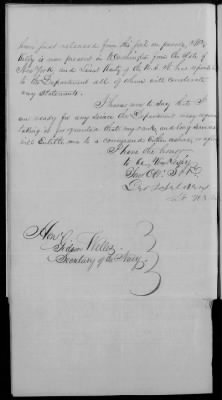 been just released from the fort on parole, Mr
is now present in Washington from the State of
New York and Lieut Barty of the U.S.N. has reported
to the Department all of whom will corroborate
my statements.
I have now to say that I
am ready for any service the Department may require
taking it for granted that my rank, and long service
will entitle me to a command either ashore, or afloat
I have the honor
to be,
Your Obt Svt
Lt. U.S.
Hon.
Gideon Welles,
Secretary of the Navy